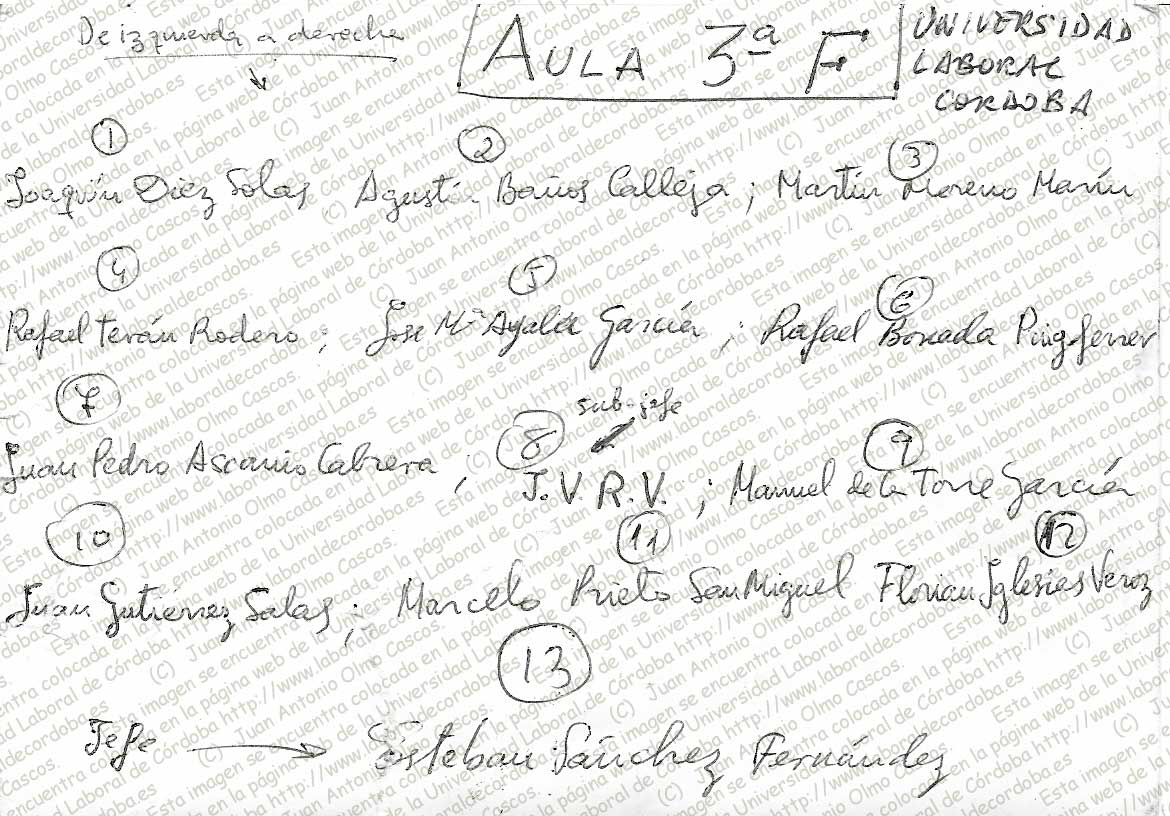 De izquierda a derecha
AULA 3ª F
UNIVERSIDAD
LABORAL
CORDOBA
1 2 3
Joaquín Diez Solas Agustín Baños Calleja; Martín Moreno Marín
4 5 6
Rafael Terán Rodero; Jose Mª Ayala García; Rafael Bonada Puigferrer
7 8 sub-jefe 9
Juan Pedro Ascanio Cabrera; J.V.R.V.; Manuel de la Torre García
10 11 12
Juan Gutiérrez Salas; Marcelo Prieto San Miguel Florian Iglesias Veroz
13
Jefe → Esteban Sánchez Fernández
(C) Juan Antonio Olmo Cascos.
Esta imagen se encuentra colocada en la página web de la Universidad Laboral de Córdoba http://www.laboraldecordoba.es